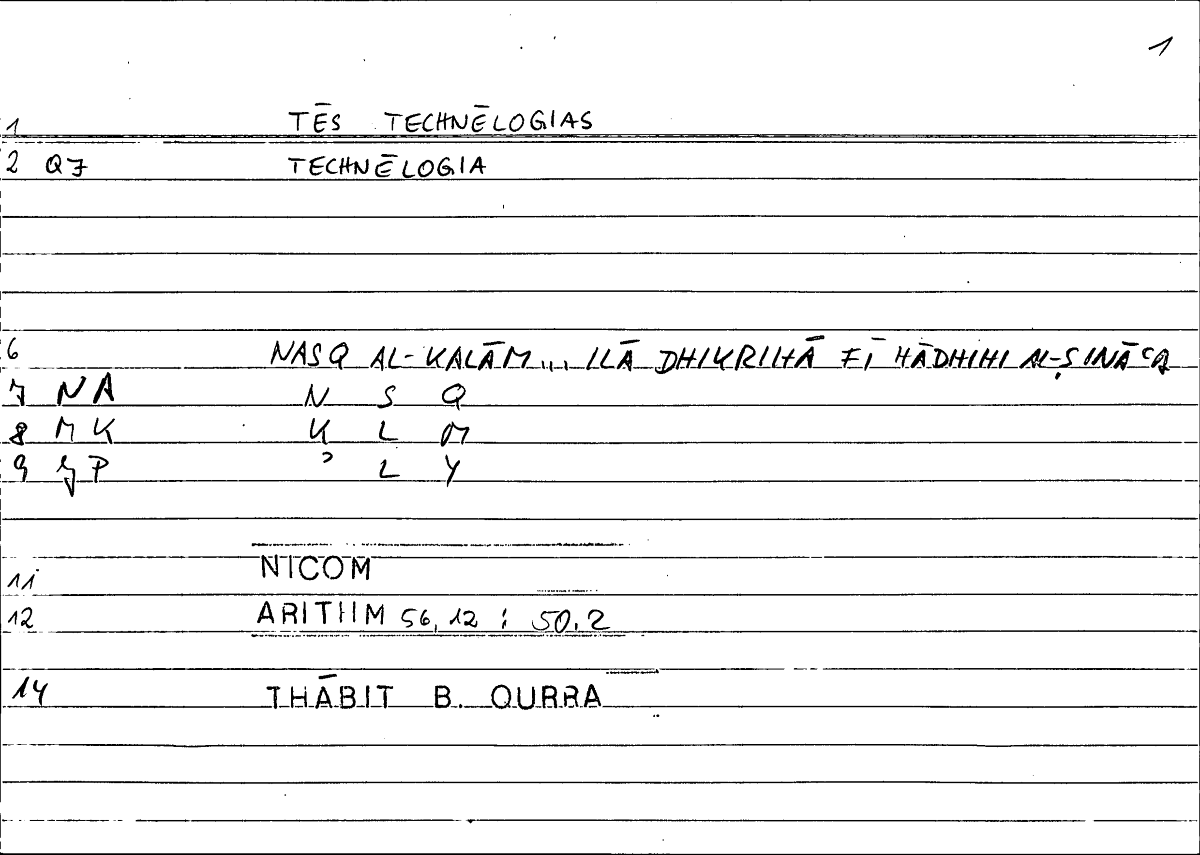 1
1 TĒS TECHNĒLOGIAS
2 Q7 TECHNĒLOGIA
6 NASQ AL-KALĀM... ILĀ DHIKRIHĀ FĪ HĀDHIHI AL-ṢINĀʿA
7 NA N S Q
8 MK K L M
9 JP ʾ L Y
11 NICOM
12 ARITHM 56,12 : 50.2
14 THĀBIT B. QURRA